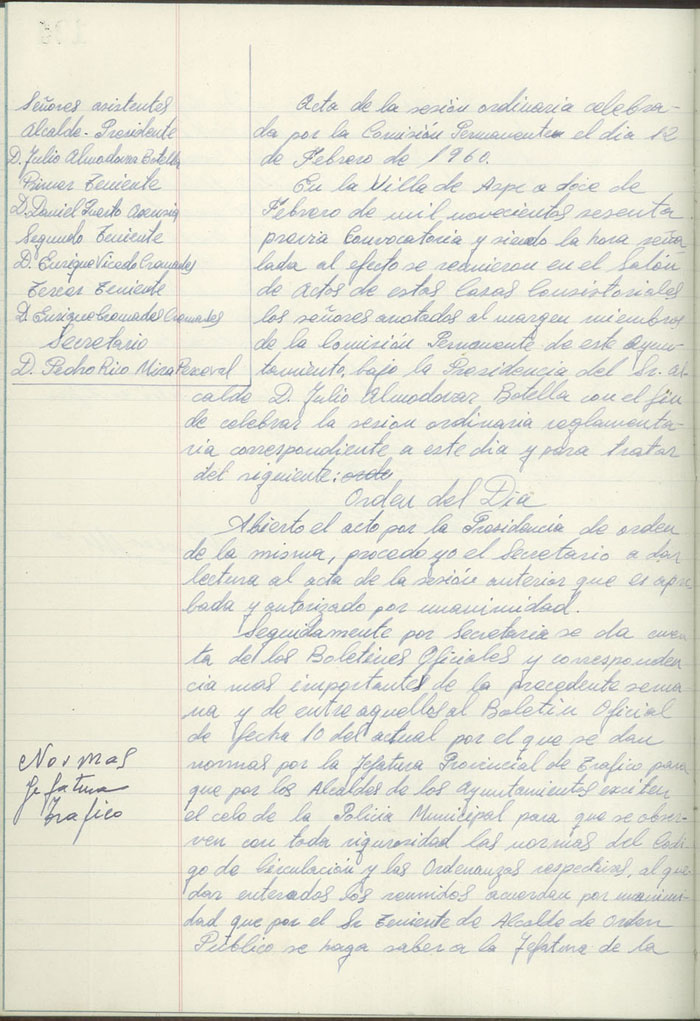 Señores asistentes
Alcalde-Presidente
D. Julio Almodovar Botella
Primer Teniente
D. Daniel Puerto Asensi
Segundo Teniente
D. Enrique Vicedo Cremades
Tercer Teniente
D. Enrique Cremades Cremades
Secretario
D. Pedro Rico Mira Perceval
Acta de la sesión ordinaria celebra-
da por la Comisión Permanente el dia 12
de Febrero de 1960.
En la Villa de Aspe a doce de
Febrero de mil novecientos sesenta
previa Convocatoria y siendo la hora seña
lada al efecto se reunieron en el Salón
de Actos de estas Casas Consistoriales
los señores anotados al margen miembros
de la Comisión Permanente de este Ayun-
tamiento, bajo la Presidencia del Sr. Al-
calde D. Julio Almodovar Botella con el fin
de celebrar la sesion ordinaria reglamenta-
ria correspondiente a este dia y para tratar
del siguiente: orde
Orden del Dia
Abierto el acto por la Presidencia de orden
de la misma, procedo yo el Secretario a dar
lectura al acta de la sesión anterior que es apro
bada y autorizado por unanimidad.
Seguidamente por Secretaria se da cuen
ta de los Boletines Oficiales y corresponden
cia mas importantes de la precedente sema
na y de entre aquellos al Boletin Oficial
de fecha 10 del actual por el que se dan
normas por la Jefatura Provincial de Trafico para
que por los Alcaldes de los Ayuntamientos exciten
el celo de la Policia Municipal para que se obser-
ven con toda rigurosidad las normas del Codi-
go de Circulación y las Ordenanzas respectivas, al que
dar enterados los reunidos acuerdan por unanimi-
dad que por el Sr Teniente de Alcalde de Orden
Público se haga saber a la Jefatura de la
Normas
Jefatura
Trafico